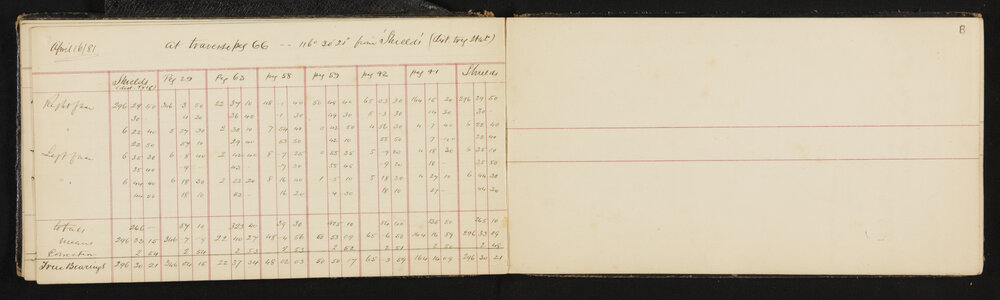 April 16/81
at traverse peg 66 -- 116° 30' 21" from 'Shields' (dist trig stat.)
Shields Peg 29 Peg 63 peg 58 peg 59 peg 92 peg 91 Shields
Right face 296 29 50 346 3 50 22 37 10 48 -1 40 50 49 40 65 03 30 164 15 20 296 29 50
30 - 4 20 36 40 -1 30 49 30 5 -3 30 14 30 30 -
6 22 40 5 57 30 2 30 10 7 54 40 5 42 50 4 56 30 4 7 40 6 22 40
22 50 57 10 29 40 53 50 42 10 55 50 7 10 22 40
Left face 6 35 30 6 8 40 2 42 40 8 -7 25 5 55 35 5 -9 20 4 18 30 6 35 10
35 40 -9 42 - -7 30 55 45 -9 20 18 - 35 50
6 44 40 6 18 30 2 52 20 8 16 40 1 -5 10 5 18 30 4 27 10 6 44 30
44 00 18 10 52 - 16 20 4 30 18 10 27 - 44 20
totals 266 - 57 10 323 40 39 30 54 00 265 10
means 296 33 15 346 7 -9 22 40 27 48 4 56 50 53 09 65 -6 50 164 16 59 296 33 09
Correction 2 54 2 54 2 53 2 53 2 52 2 51 2 50 2 48
True Bearings 296 30 21 346 04 15 22 37 34 48 02 03 50 50 17 65 -3 59 164 14 09 296 30 21
B